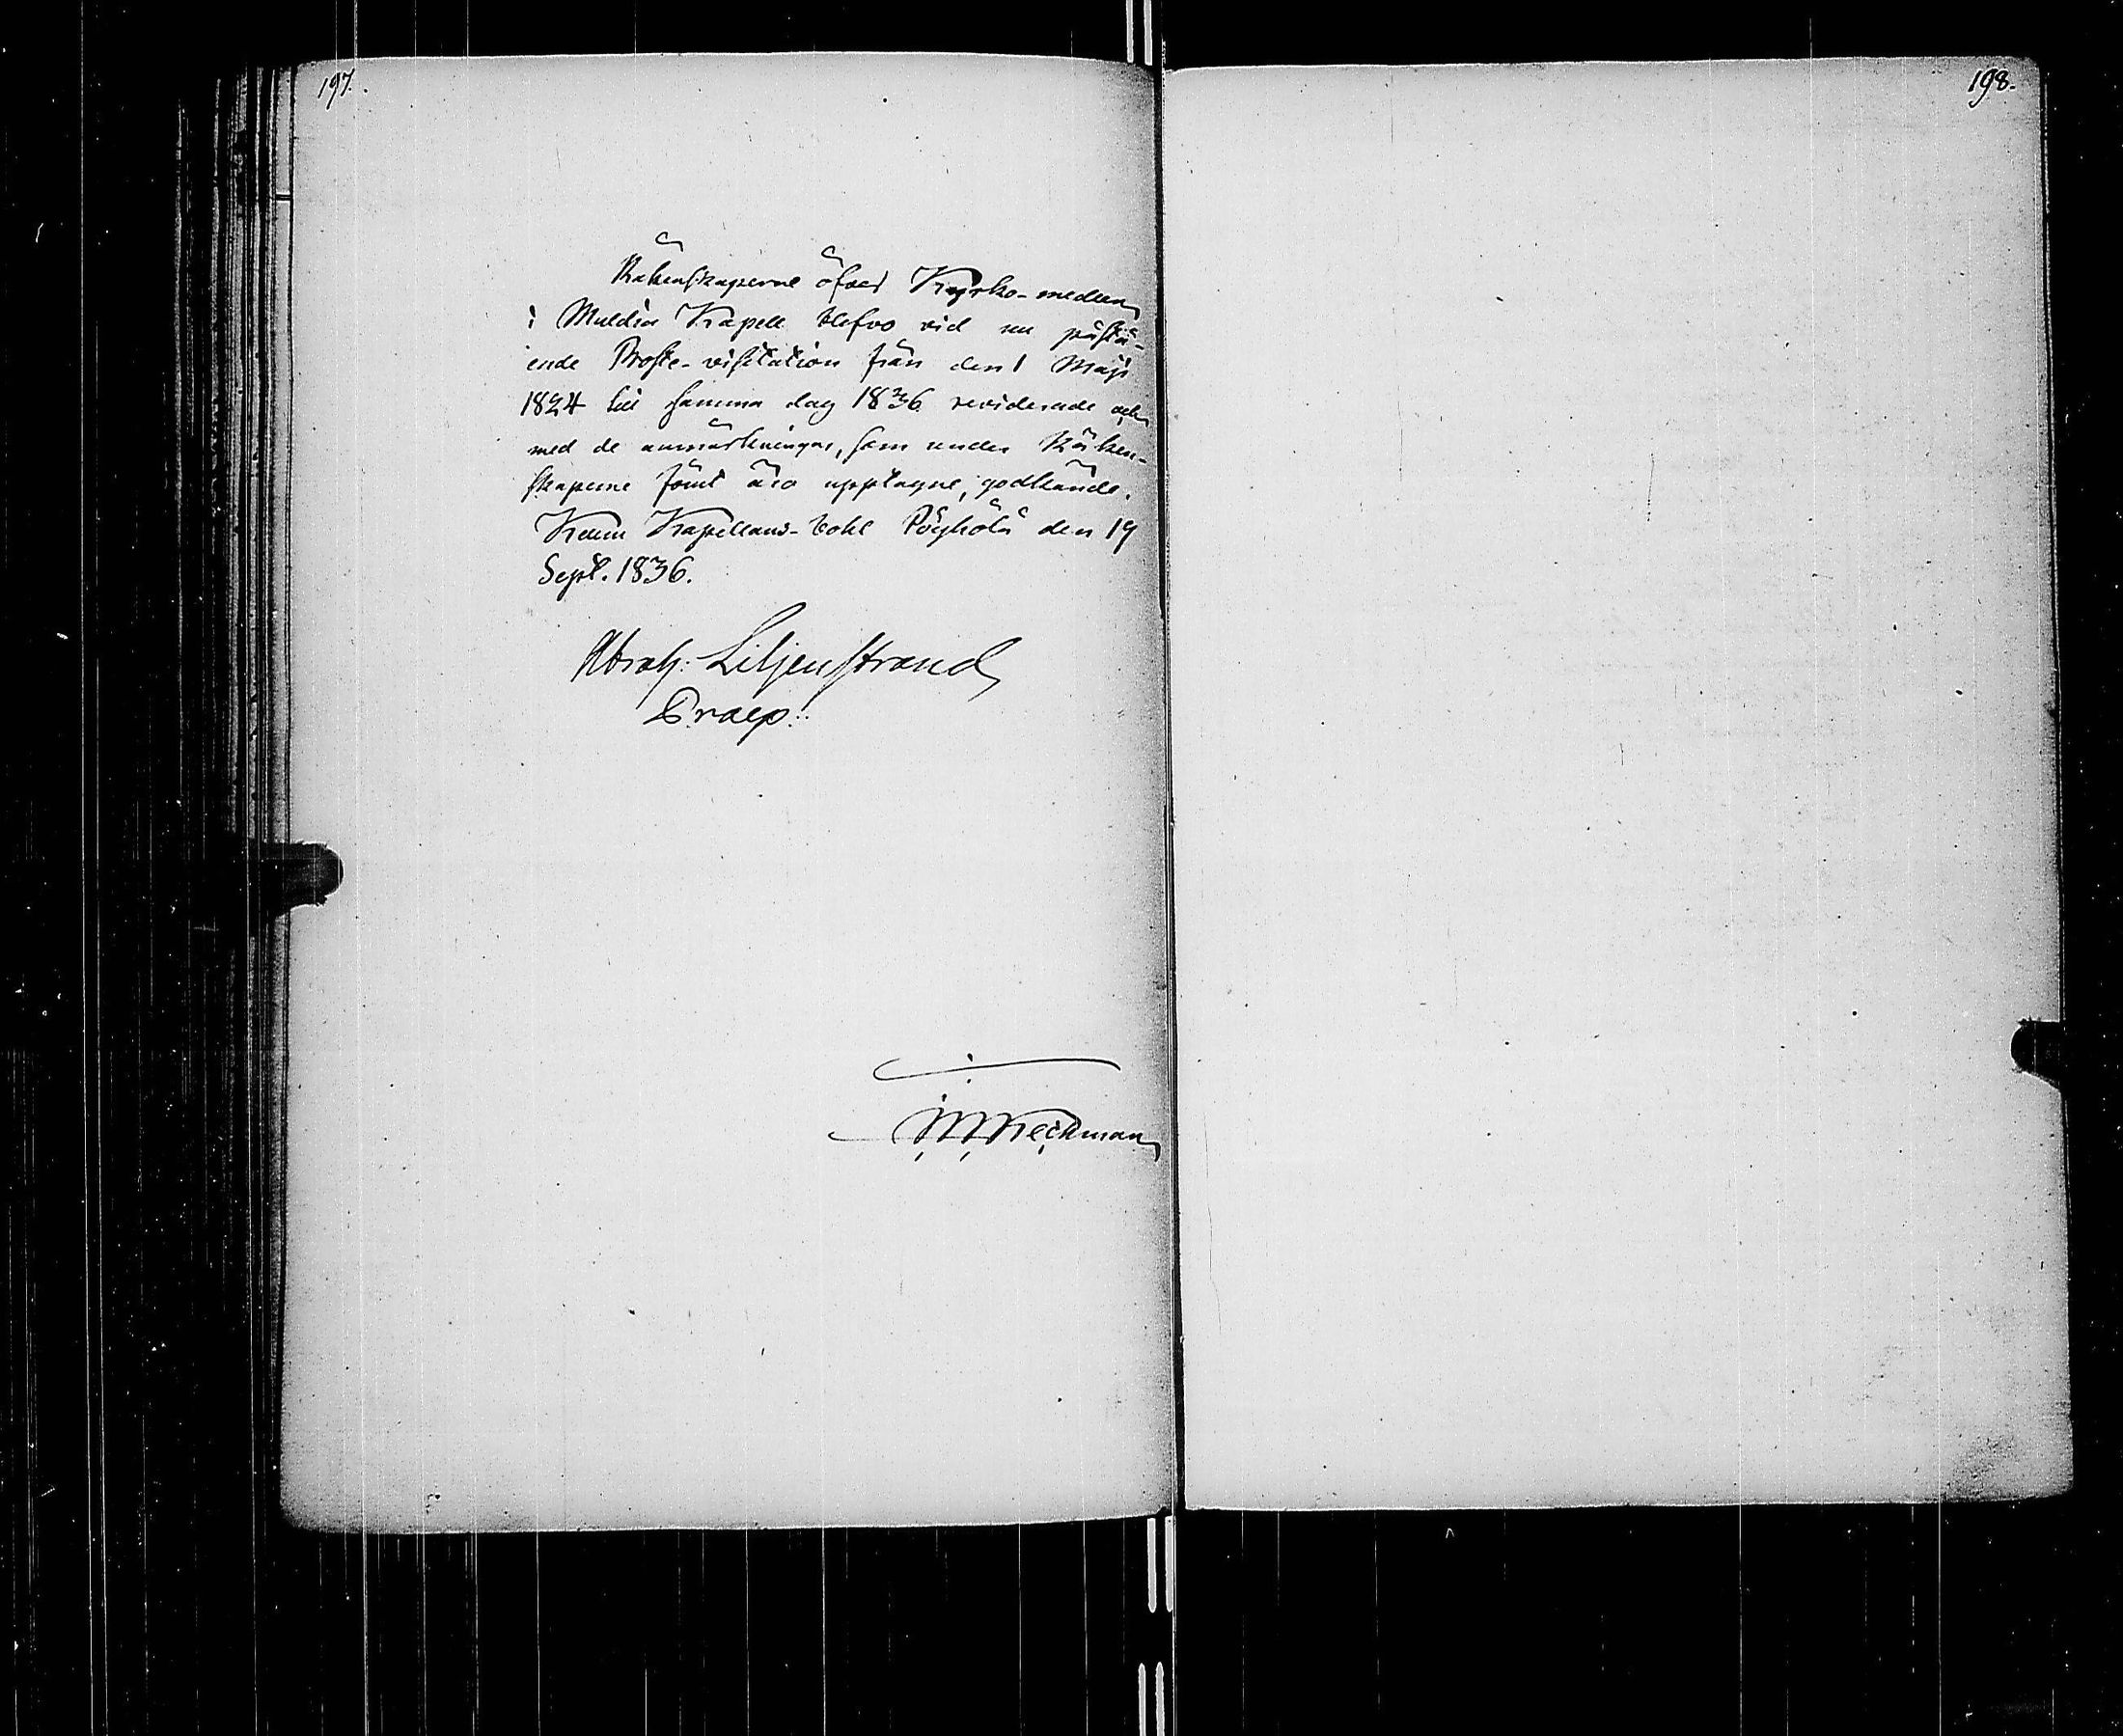 197.
198.
Räkenskaperne öfver Kyrko-medlen
i Muldia Kapell blefvo vid nu påstå-
ende Proste-visitation från den 1 Maji
1824 till samma dag 1836 reviderade och
med de anmärkningar, som under Räken-
skaperne förut äro upptagne, godkände.
Keuru Kapellans-bohl Pöyhölä den 19
Sept. 1836.
Abrah: Liljenstrand
Praep: